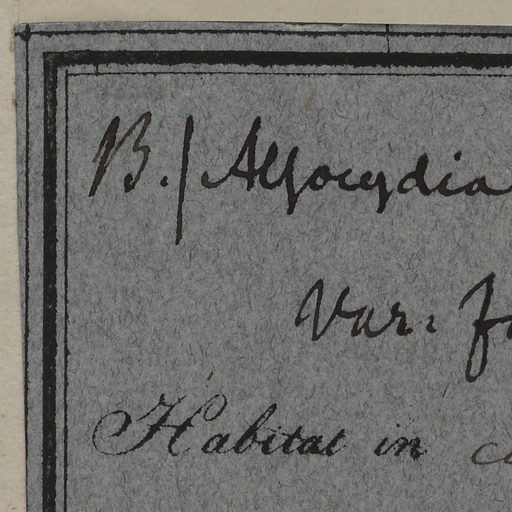 B./ Alyocydia
Var:
Habitat in